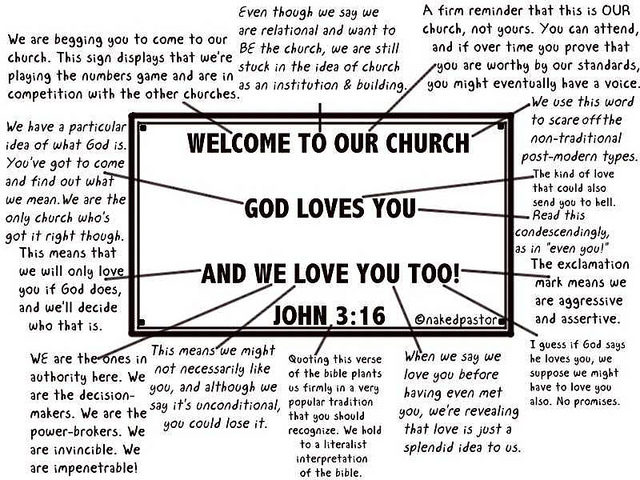 We are begging you to come to our
church. This sign displays that we're
playing the numbers game and are in
competition with the other churches.
Even though we say we
are relational and want to
BE the church, we are still
stuck in the idea of church
as an institution & building.
A firm reminder that this is OUR
church, not yours. You can attend,
and if over time you prove that
you are worthy by our standards,
you might eventually have a voice.
We use this word
to scare off the
non-traditional
post-modern types.
We have a particular
idea of what God is.
You've got to come
and find out what
we mean. We are the
only church who's
got it right though.
The kind of love
that could also
send you to hell.
Read this
condescendingly,
as in "even you!"
This means that
we will only love
you if God does,
and we'll decide
who that is.
The exclamation
mark means we
are aggressive
and assertive.
WELCOME TO OUR CHURCH
GOD LOVES YOU
AND WE LOVE YOU TOO!
JOHN 3:16
©nakedpastor
WE are the ones in
authority here. We
are the decision-
makers. We are the
power-brokers. We
are invincible. We
are impenetrable!
This means we might
not necessarily like
you, and although we
say it's unconditional,
you could lose it.
Quoting this verse
of the bible plants
us firmly in a very
popular tradition
that you should
recognize. We hold
to a literalist
interpretation
of the bible.
When we say we
love you before
having even met
you, we're revealing
that love is just a
splendid idea to us.
I guess if God says
he loves you, we
suppose we might
have to love you
also. No promises.